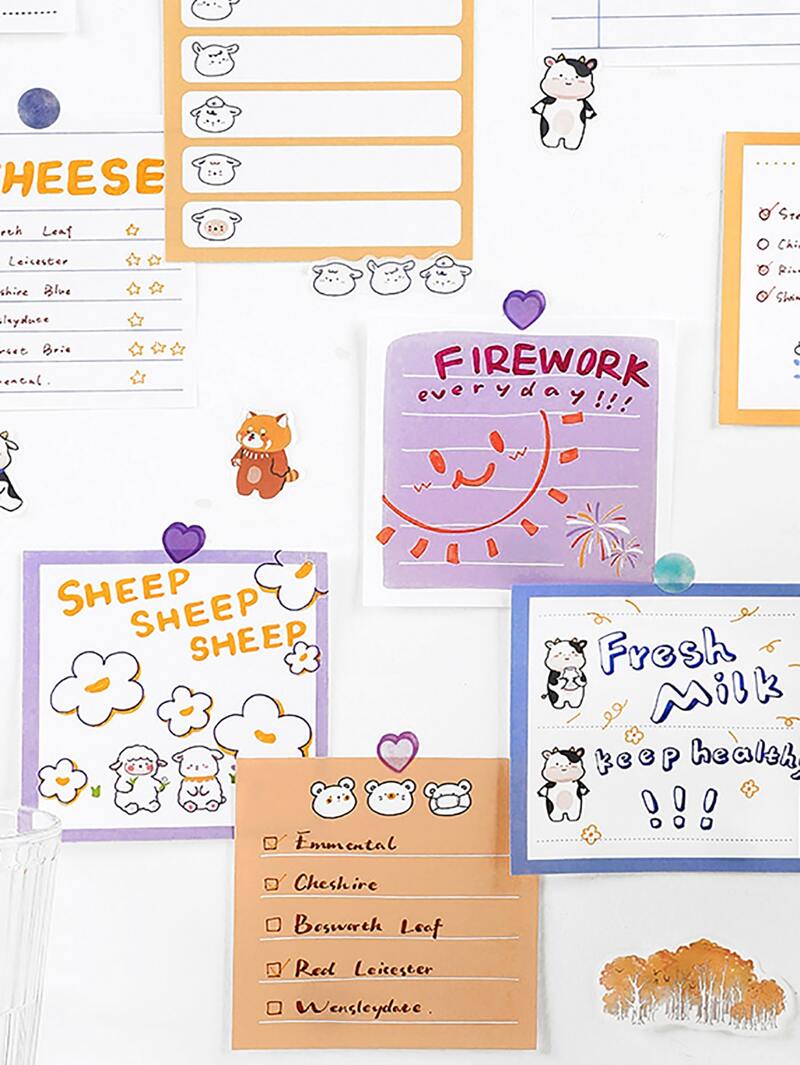 HEESE
rth Leaf
Leicester
shire Blue
sleydate
rset Brie
mental.
FIREWORK
everyday!!!
SHEEP
SHEEP
SHEEP
Fresh
Milk
keep healthy
!!!
Emmental
Cheshire
Bosworth Leaf
Red Leicester
Wensleydate.